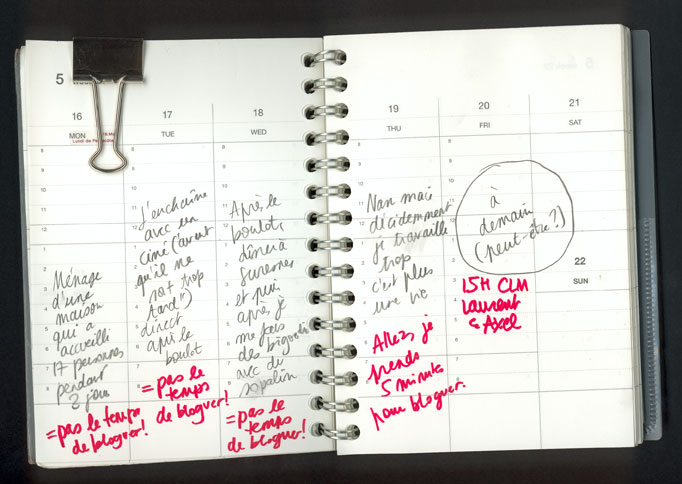 5
16
MON
Ménage
d'une
maison
qui a
accueilli
17 personnes
pendant
3 jours
= pas le temps
de bloguer!
17
TUE
J'enchaîne
avec un
ciné ("avant
qu'il ne
soit trop
tard")
direct
après le
boulot
= pas le
temps
de bloguer!
18
WED
Après le
boulot,
dîner à
Suresnes
et puis
après je
me fais
des bigoudis
avec du
sopalin
= pas le
temps
de bloguer!
19
THU
Nan mais
décidemment
je travaille
trop
c'est plus
une vie
Allez je
prends
5 minutes
pour bloguer.
20
FRI
à
demain
(peut-être?)
15H CLM
Laurent
& Axel
21
SAT
22
SUN